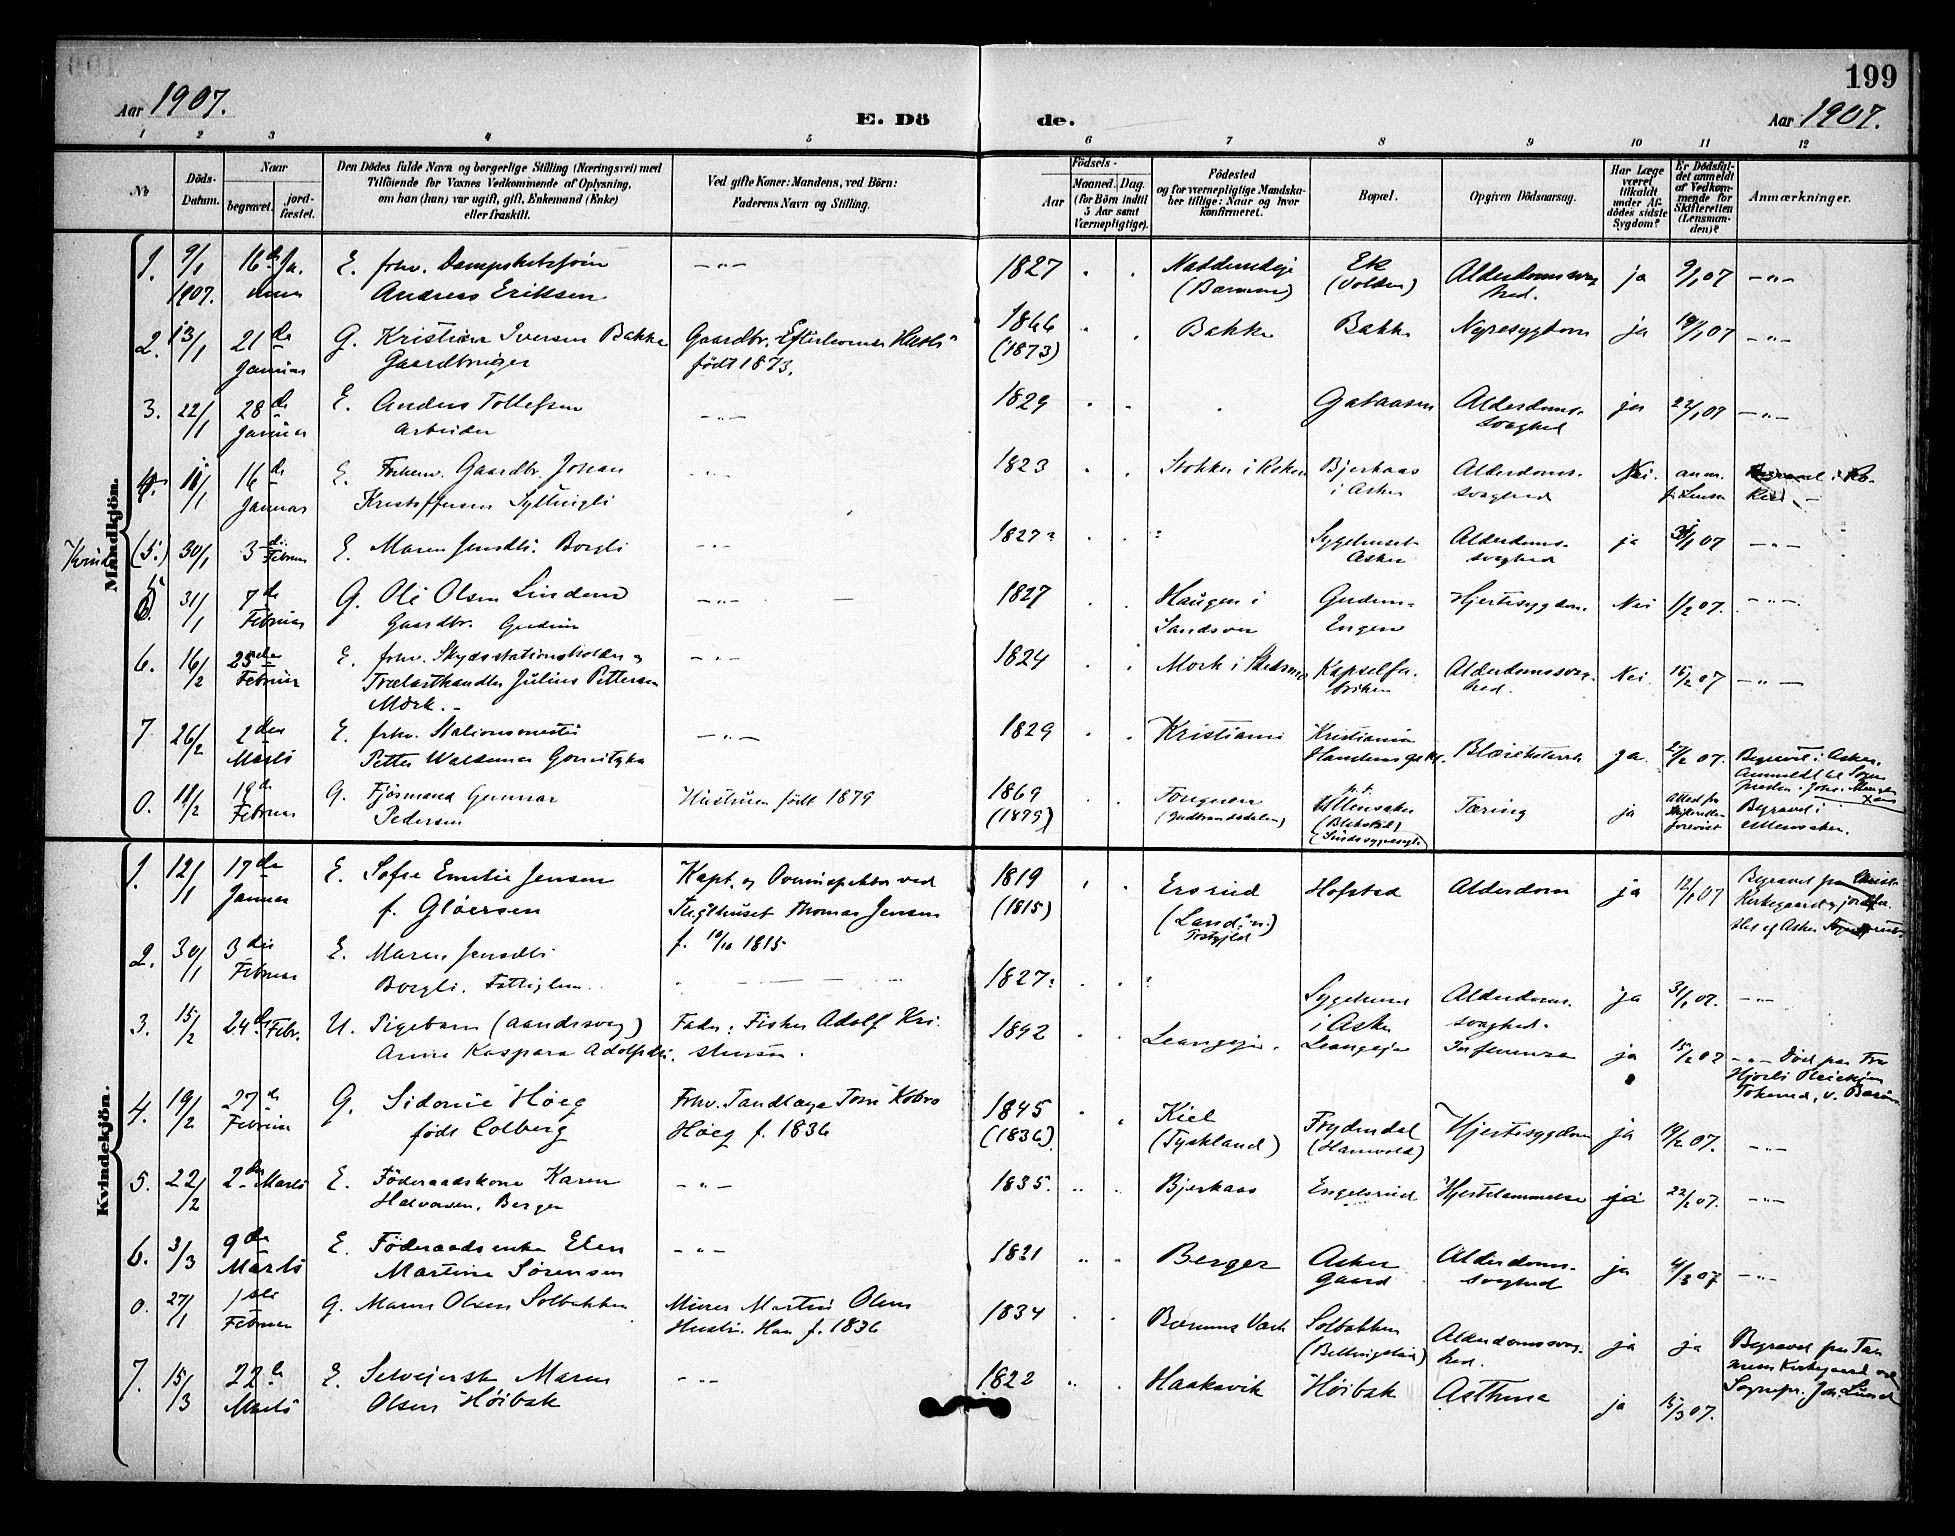 199
Aar 1907.
E. Dö
de.
Aar 1907.
1 2 3 4 5 6 7 8 9 10 11 12
No
Döds-
Datum.
Naar
begravet.
jord-
fæstet.
Den Dödes fulde Navn og borgerlige Stilling (Næringsvei) med
Tilföiende for Voxnes Vedkommende af Oplysning,
om han (hun) var ugift, gift, Enkemand (Enke)
eller fraskilt.
Ved gifte Koner: Mandens, ved Börn:
Faderens Navn og Stilling.
Födsels-
Aar
Maaned. Dag.
(for Börn indtil
5 Aar samt
Værnepligtige).
Födested
og for værnepligtige Mandska-
ber tillige: Naar og hvor
konfirmeret.
Bopæl.
Opgiven Dödsaarsag.
Har Læge
været
tilkaldt
under Af-
dödes sidste
Sygdom?
Er Dödsfal-
det anmeldt
af Vedkom-
mende for
Skifteretten
(Lensman-
den)?
Anmærkninger.
Mandkjön.
1. 9/1 1907. 16de Ja. E. frhv.
Andreas Eriksen
1827 (Bærum) Ek Alderdomssvag-
hed. ja 9/1 07 —„—
2. 13/1 21de Januar G. Kristian Iversen Bakke
Gaardbruger
Gaardbr. Efterlevende Hustru
född 1873.
1866
(1873) Bakke Bakke Nyresygdom ja 19/1 07 —„—
3. 22/1 28de Januar E. Anders Tollefsen
Arbeider
—„— 1829 Alderdoms-
svaghed ja 22/1 07 —„—
4. 11/1 16de Januar E. Forhenv. Gaardbr. Johan
Kristoffersen Syltingli
—„— 1823 Stokker i Röken Bjerkaas
i Asker Alderdoms-
svaghed Nei.
Kvinde (5.) 30/1 3die Februar E. Maren Jensdtr. Borgli
—„— 1827? ? Sygehuset
Asker Alderdoms-
svaghed ja 31/1 07 —„—
5. 31/1 7de Februar G. Ole Olsen Linden
Gaardbr.
—„— 1827 Haugen i
Sandsvær
Engen Hjertesygdom Nei 1/2 07. —„—
6. 16/2 25de Februar E. frhv. Skydsstationsholder og
Trælasthandler Julius Pettersen
Mörk.
—„— 1824 Mork i Kapselfa-
briken Alderdomssvag-
hed. Nei 16/2 07 —„—
7 26/2 2den Marts E. frhv. Stationsmester
Petter Waldemar
—„— 1829 Kristiania Kristiania
Blærekatarrh ja. 27/2 07. Begravet i Asker.
0. 11/2 19de Februar G. Gunnar
Pedersen
Hustruen född 1879
1869
(1879) (Gudbrandsdalen) p.t.
Ullensaker
Tæring ja
Begravet i
Ullensaker.
Kvindekjön.
1. 12/1 17de Januar E. Sofie Emilie Jensen
f. Glöersen
Kapt. og Overinspektör ved
Tugthuset Thomas Jensen
f. 10/10 1815
1819
(1815) Ersrud
(Land. Hofstad Alderdom ja 12/1 07 Begravet paa Christ.
2. 30/1 3die Februar E. Maren Jensdtr.
Borgli. Fattiglem.
1827? ? Sygehuset
i Asker Alderdoms-
svaghed. ja 31/1 07. —„—
3. 15/2 24de Febr. U. Pigebarn (aandssvag)
Anne Kaspara Adolfsdtr.
Fader: Fisker Adolf Kri-
stensen.
1892 Leangeje. Leangeje Influenza ja 15/2 07 —„— Död paa
4. 19/2 27de Februar G. Sidonie Höeg
född Colberg
Frhv. Tandlæge Toni Kobro
Höeg f. 1836
1845
(1836) Kiel
(Tyskland) Frydendal
(Hanvold) Hjertesygdom ja 19/2 07. —„—
5. 22/2 2den Marts E. Föderaadskone Karen
Halvorsen, Berger
—„— 1835. Bjerkaas Engelsrud Hjertelammelse ja 22/2 07. —„—
6. 3/3 9de Marts E. Föderaadsenke Elen
Martine Sörensen
—„— 1821 Berger Asker
gaard Alderdoms-
svaghed ja 4/3 07 —„—
0. 27/1 1ste Februar G. Maren Olsen Solbakken
Murer Martin Olsens
Hustru. Han f. 1836
1834 Bærums Værk Solbakken
(Billingstad) Alderdomssvag-
hed. ja ja Begravet paa Tan-
um Kirkegaard ved
Sognepr. Joh. Lund
7. 15/3 22de Marts E. Selveierske Maren
Olsen Höibak
—„— 1822 Haakavik Höibak Asthma ja 15/3 07.